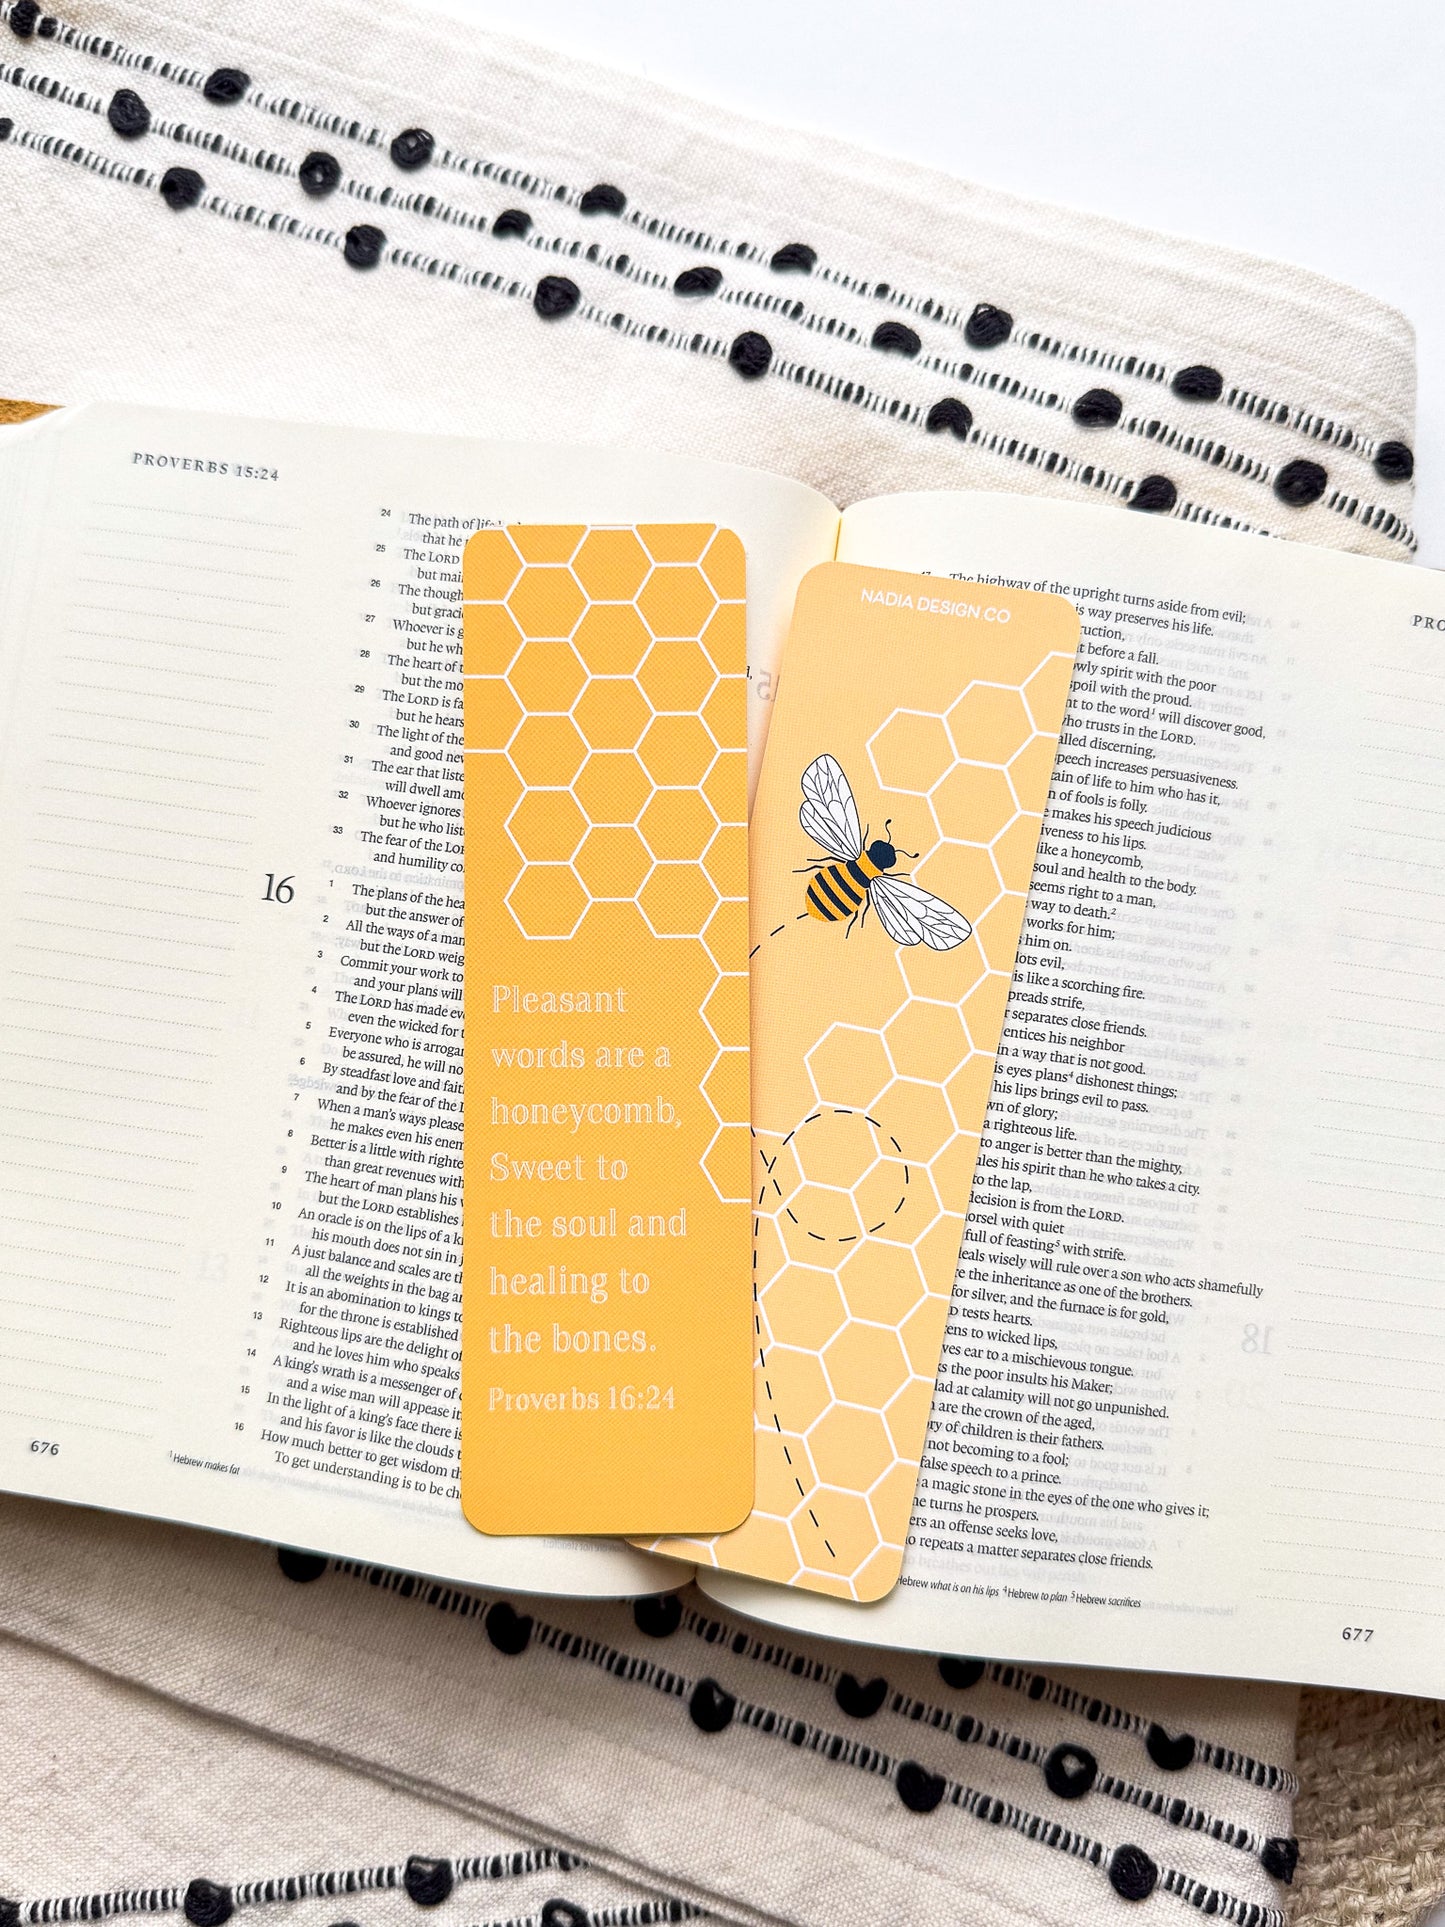 PROVERBS 15:24
24 The path of
that he
25 The LORD
but
26 The
but
27 Whoever is
but he
28 The heart of
but the
29 The LORD is
but he hears
30 The light of the
and good
31 The ear that
will dwell
32 Whoever ignores
but he who
33 The fear of the
and humility
16
1 The plans of the
but the answer of
2 All the ways of a man
but the LORD
3 Commit your work to
and your plans will
4 The LORD has made
even the wicked for
5 Everyone who is
be assured, he will
6 By steadfast love and
and by the fear of the
7 When a man's ways please
he makes even his
8 Better is a little with
than great revenues with
9 The heart of man plans his
but the LORD establishes
10 An oracle is on the lips of a
his mouth does not sin in
11 A just balance and scales are
all the weights in the bag
12 It is an abomination to kings
for the throne is established
13 Righteous lips are the delight of
and he loves him who speaks
14 A king's wrath is a messenger of
and a wise man will appease
15 In the light of a king's face there is
and his favor is like the clouds
16 How much better to get wisdom
To get understanding is to be
1 Hebrew makes fat
676
Pleasant
words are a
honeycomb,
Sweet to
the soul and
healing to
the bones.
Proverbs 16:24
NADIA DESIGN CO
The highway of the upright turns aside from evil;
way preserves his life.
before a fall.
spirit with the poor
spoil with the proud.
to the word¹ will discover good,
who trusts in the LORD.
discerning,
speech increases persuasiveness.
of life to him who has it,
of fools is folly.
makes his speech judicious
to his lips.
like a honeycomb,
soul and health to the body.
seems right to a man,
way to death.²
works for him;
him on.
evil,
is like a scorching fire.
spreads strife,
separates close friends.
entices his neighbor
in a way that is not good.
eyes plans⁴ dishonest things;
his lips brings evil to pass.
of glory;
a righteous life.
to anger is better than the mighty,
his spirit than he who takes a city.
to the lap,
decision is from the LORD.
with quiet
full of feasting⁵ with strife.
deals wisely will rule over a son who acts shamefully
the inheritance as one of the brothers.
for silver, and the furnace is for gold,
tests hearts.
to wicked lips,
ear to a mischievous tongue.
the poor insults his Maker;
at calamity will not go unpunished.
are the crown of the aged,
of children is their fathers.
not becoming to a fool;
false speech to a prince.
a magic stone in the eyes of the one who gives it;
he turns he prospers.
an offense seeks love,
repeats a matter separates close friends.
Hebrew what is on his lips 4 Hebrew to plan 5 Hebrew sacrifices
677